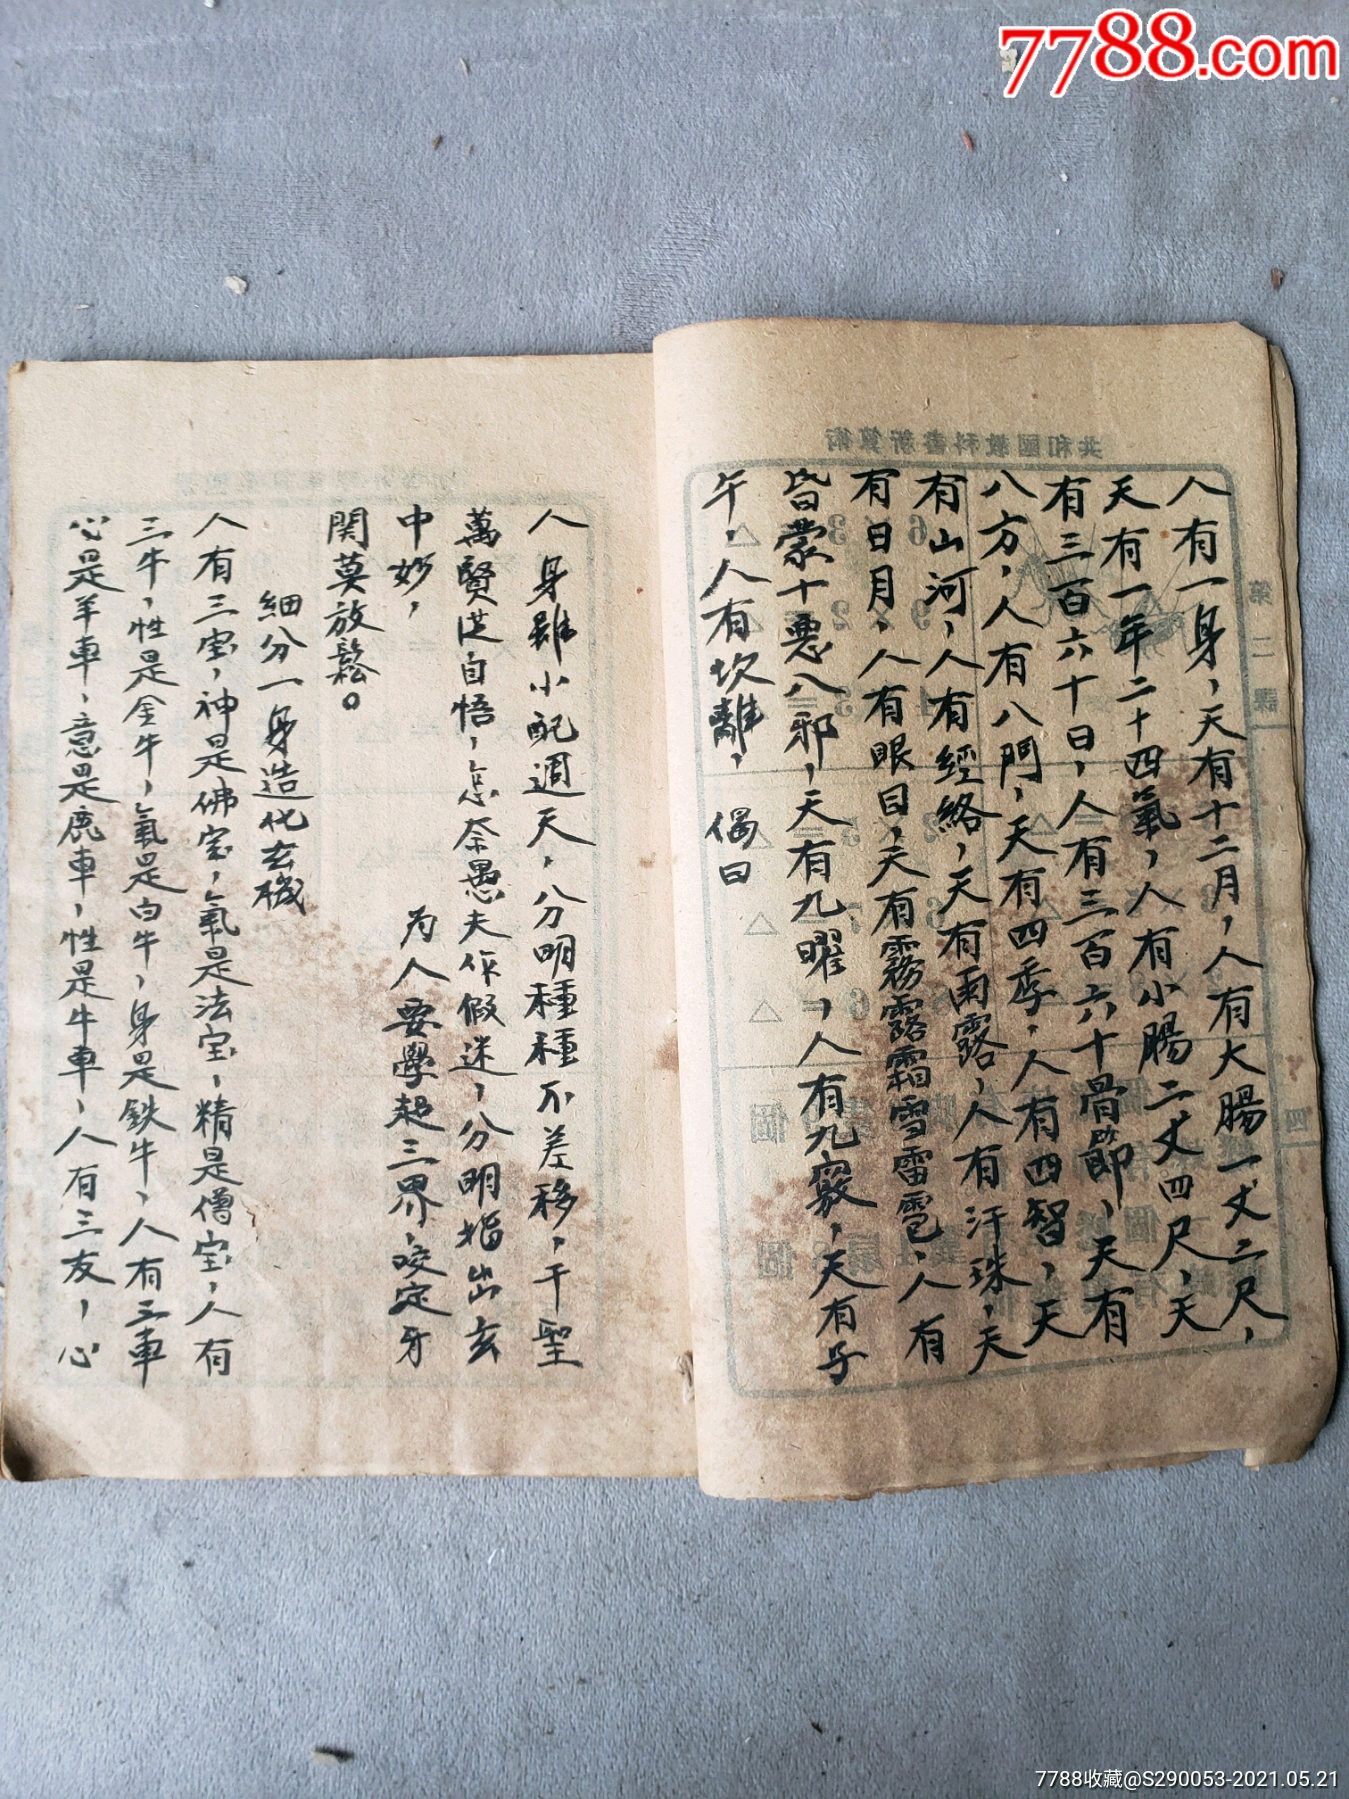 7788.com
共和國教科書新算術
第二課
四
人有一身，天有十二月，人有大腸一丈二尺，
天有一年二十四氣，人有小腸二丈四尺，天
有三百六十日，人有三百六十骨節，天有
八方，人有八門，天有四季，人有四智，天
有山河，人有經絡，天有雨露，人有汗珠，天
有日月，人有眼目，天有霧露霜雪雷雹，人有
皆蒙十惡八邪，天有九曜，人有九竅，天有子
午，人有坎離， 偈曰
人身雖小配週天，分明種種不差移，千聖
萬賢從自悟，怎奈愚夫作假迷，分明指出玄
中妙， 为人要學超三界，咬定牙
関莫放鬆。
細分一身造化玄機
人有三宝，神是佛宝，氣是法宝，精是僧宝，人有
三牛，性是金牛，氣是白牛，身是鉄牛，人有三車
心是羊車，意是鹿車，性是牛車，人有三友，心
7788收藏@S290053-2021.05.21